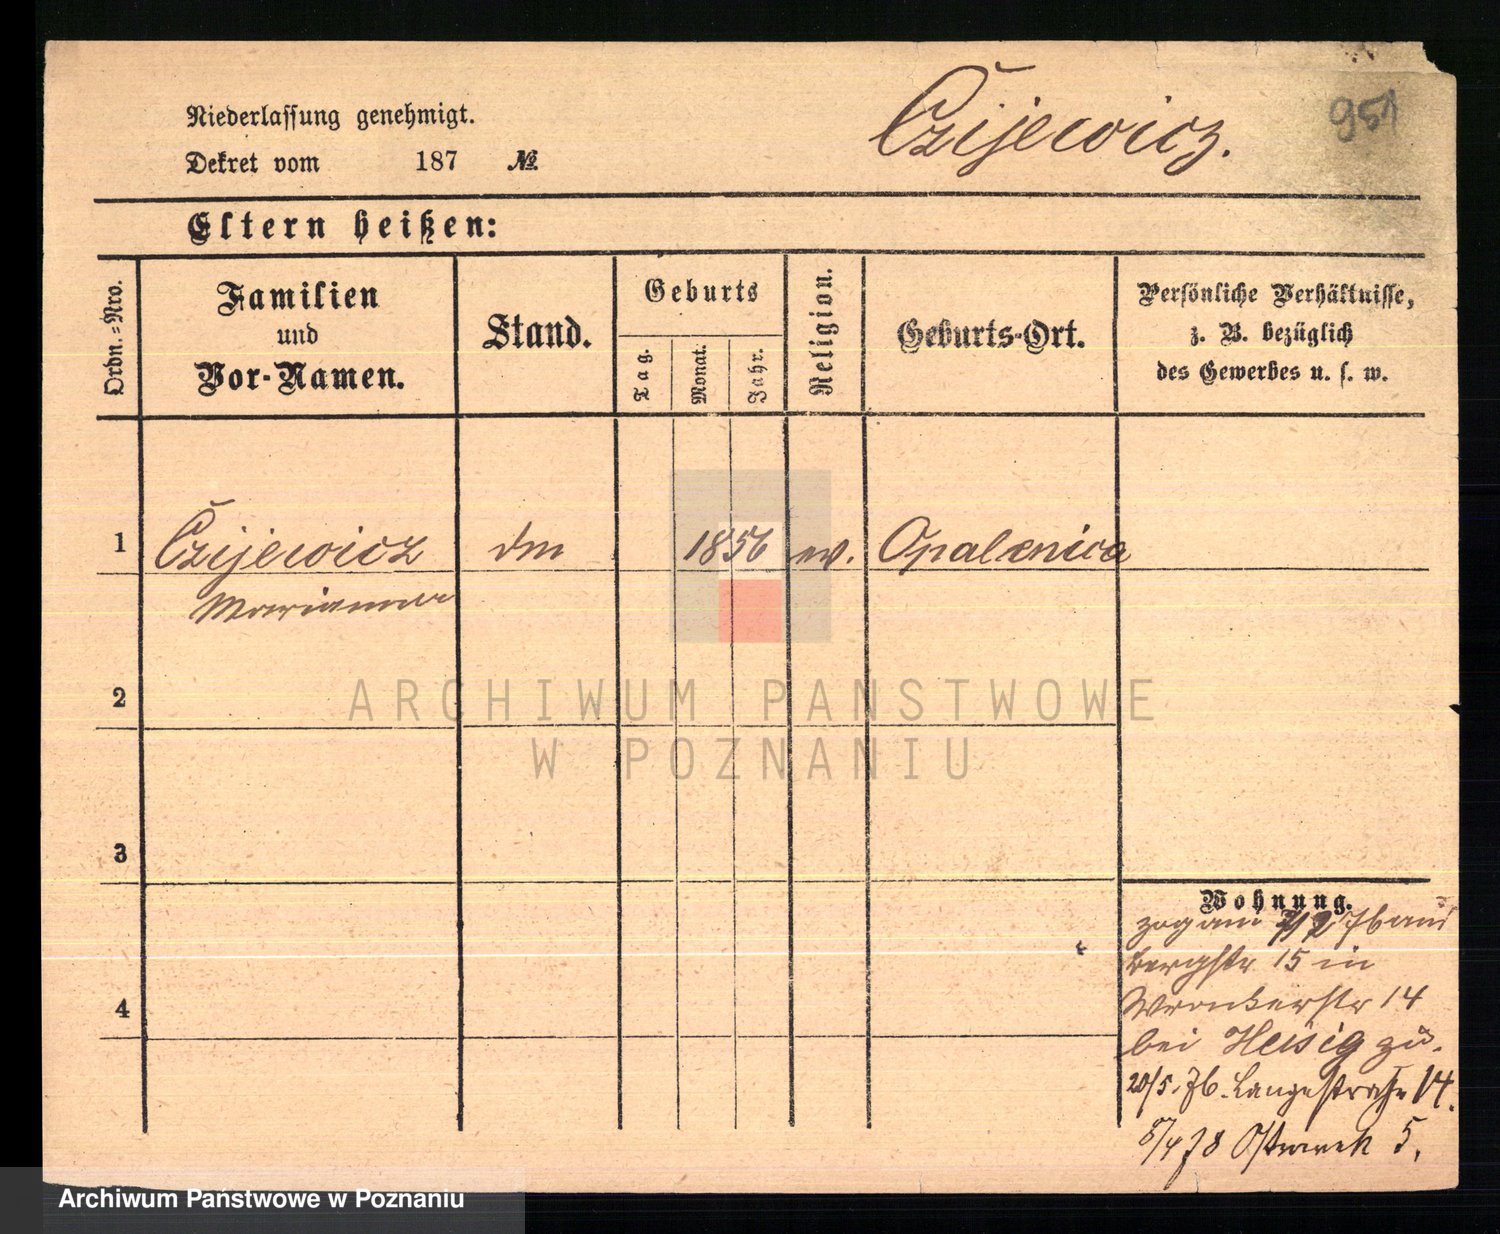 951
Czijewicz.
Niederlassung genehmigt.
Dekret vom 187 №
Eltern heißen:
Ordn.-Nro.
Familien
und
Vor-Namen.
Stand.
Geburts
Tag.
Monat.
Jahr.
Religion.
Geburts-Ort.
Persönliche Verhältnisse,
z. B. bezüglich
des Gewerbes u. s. w.
1 Czijewicz 1856 ev. Opalenica
Marianna
2
3
4
Wohnung.
zog am 76 aus
Bergstr 15 in
Wronkerstr 14
bei Heisig zu.
20/5. 76. Langestraße 14.
5/4 78 Ostrowek 5.
ARCHIWUM PAŃSTWOWE
W POZNANIU
Archiwum Państwowe w Poznaniu